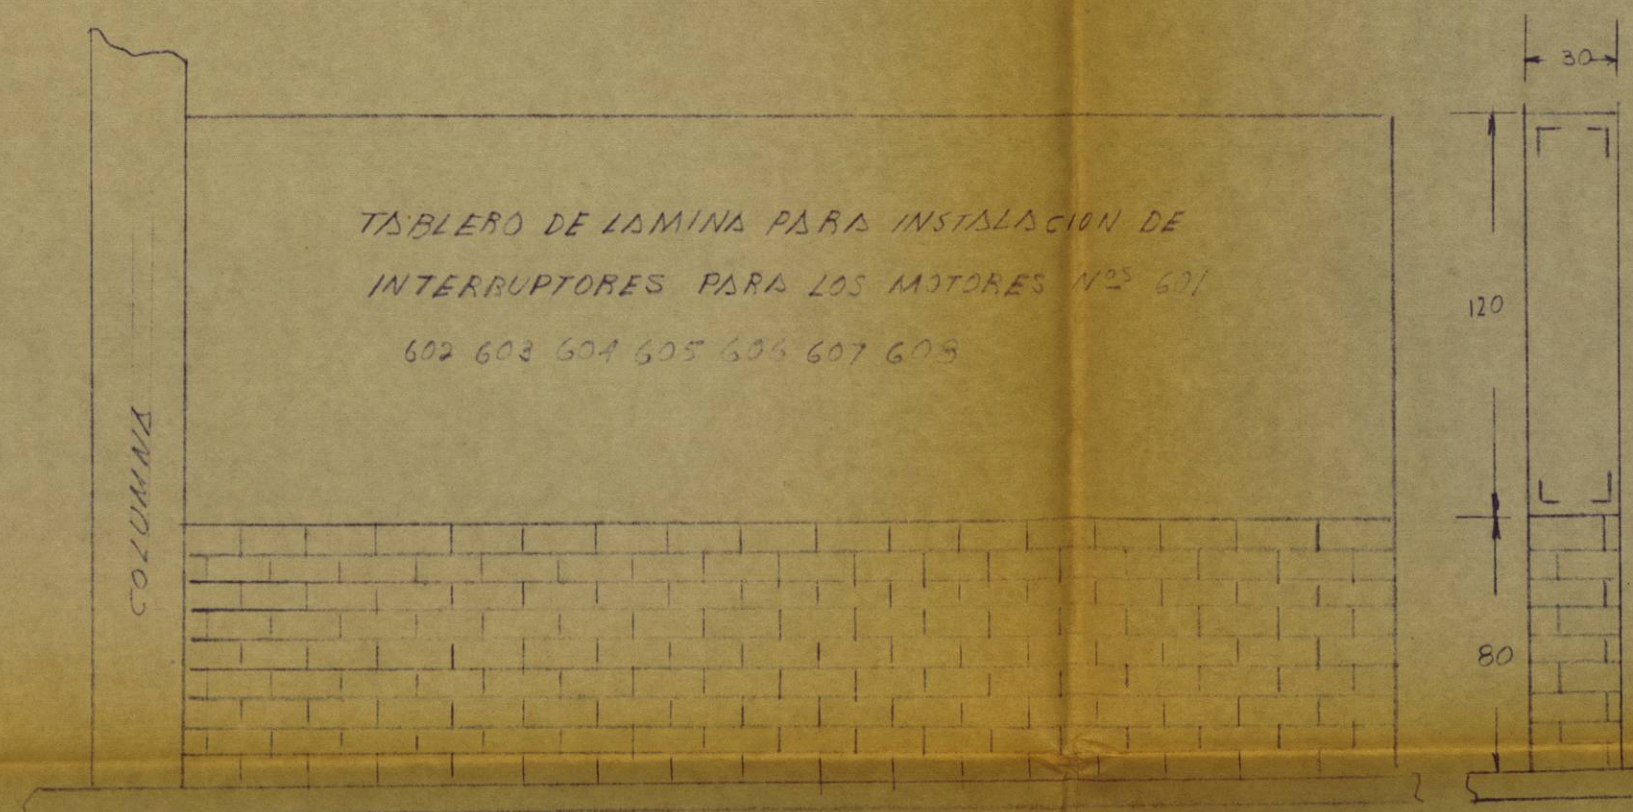 30
TABLERO DE LAMINA PARA INSTALACION DE
INTERRUPTORES PARA LOS MOTORES Nos 601
602 603 604 605 606 607 608
120
COLUMNA
80